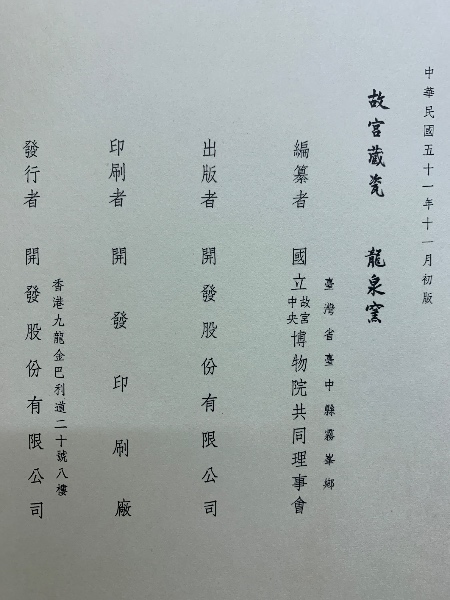 中華民國五十一年十一月初版
故宮藏瓷 龍泉窯
臺灣省臺中縣霧峯鄉
編纂者 國立故宮中央博物院共同理事會
出版者 開發股份有限公司
印刷者 開發印刷廠
香港九龍金巴利道二十號八樓
發行者 開發股份有限公司